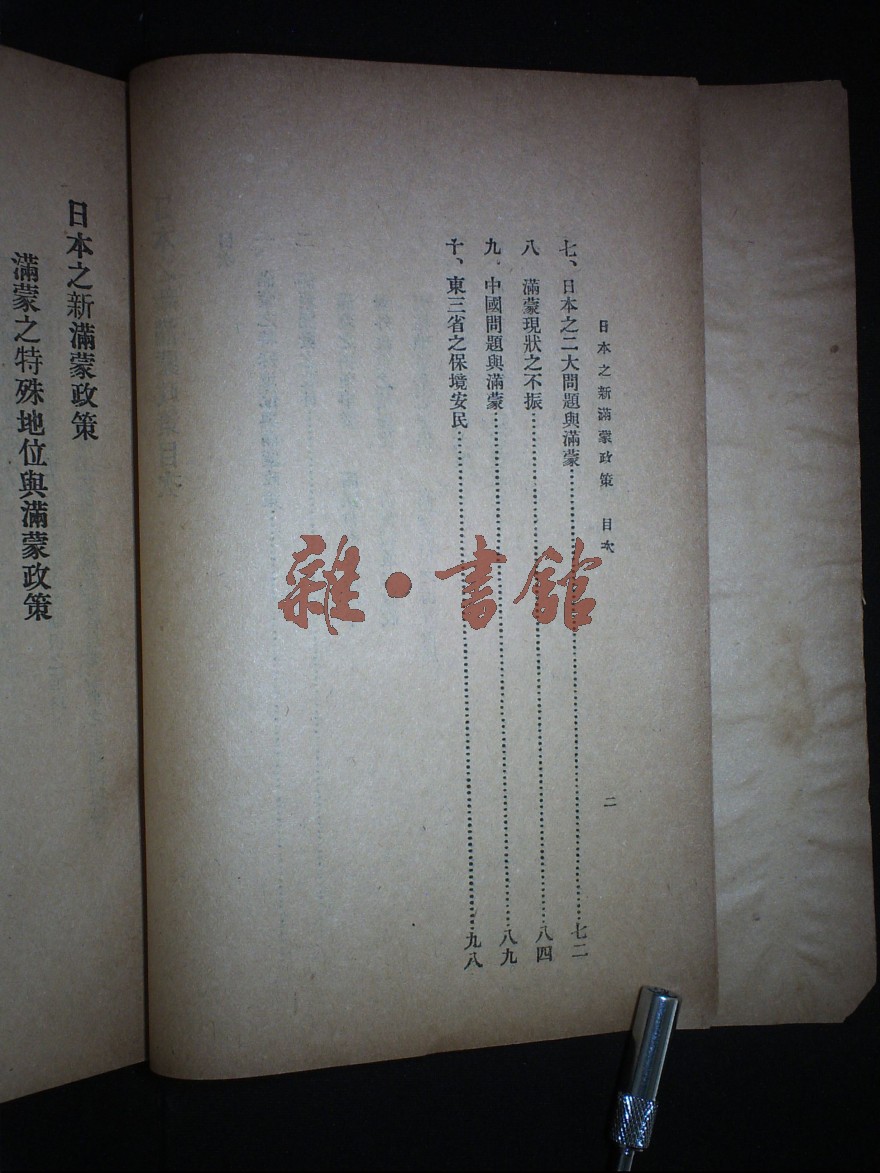 日本之新滿蒙政策　目次
二
七、日本之二大問題與滿蒙……七二
八　滿蒙現狀之不振……八四
九、中國問題與滿蒙……八九
十、東三省之保境安民……九八
雜·書館
日本之新滿蒙政策
滿蒙之特殊地位與滿蒙政策